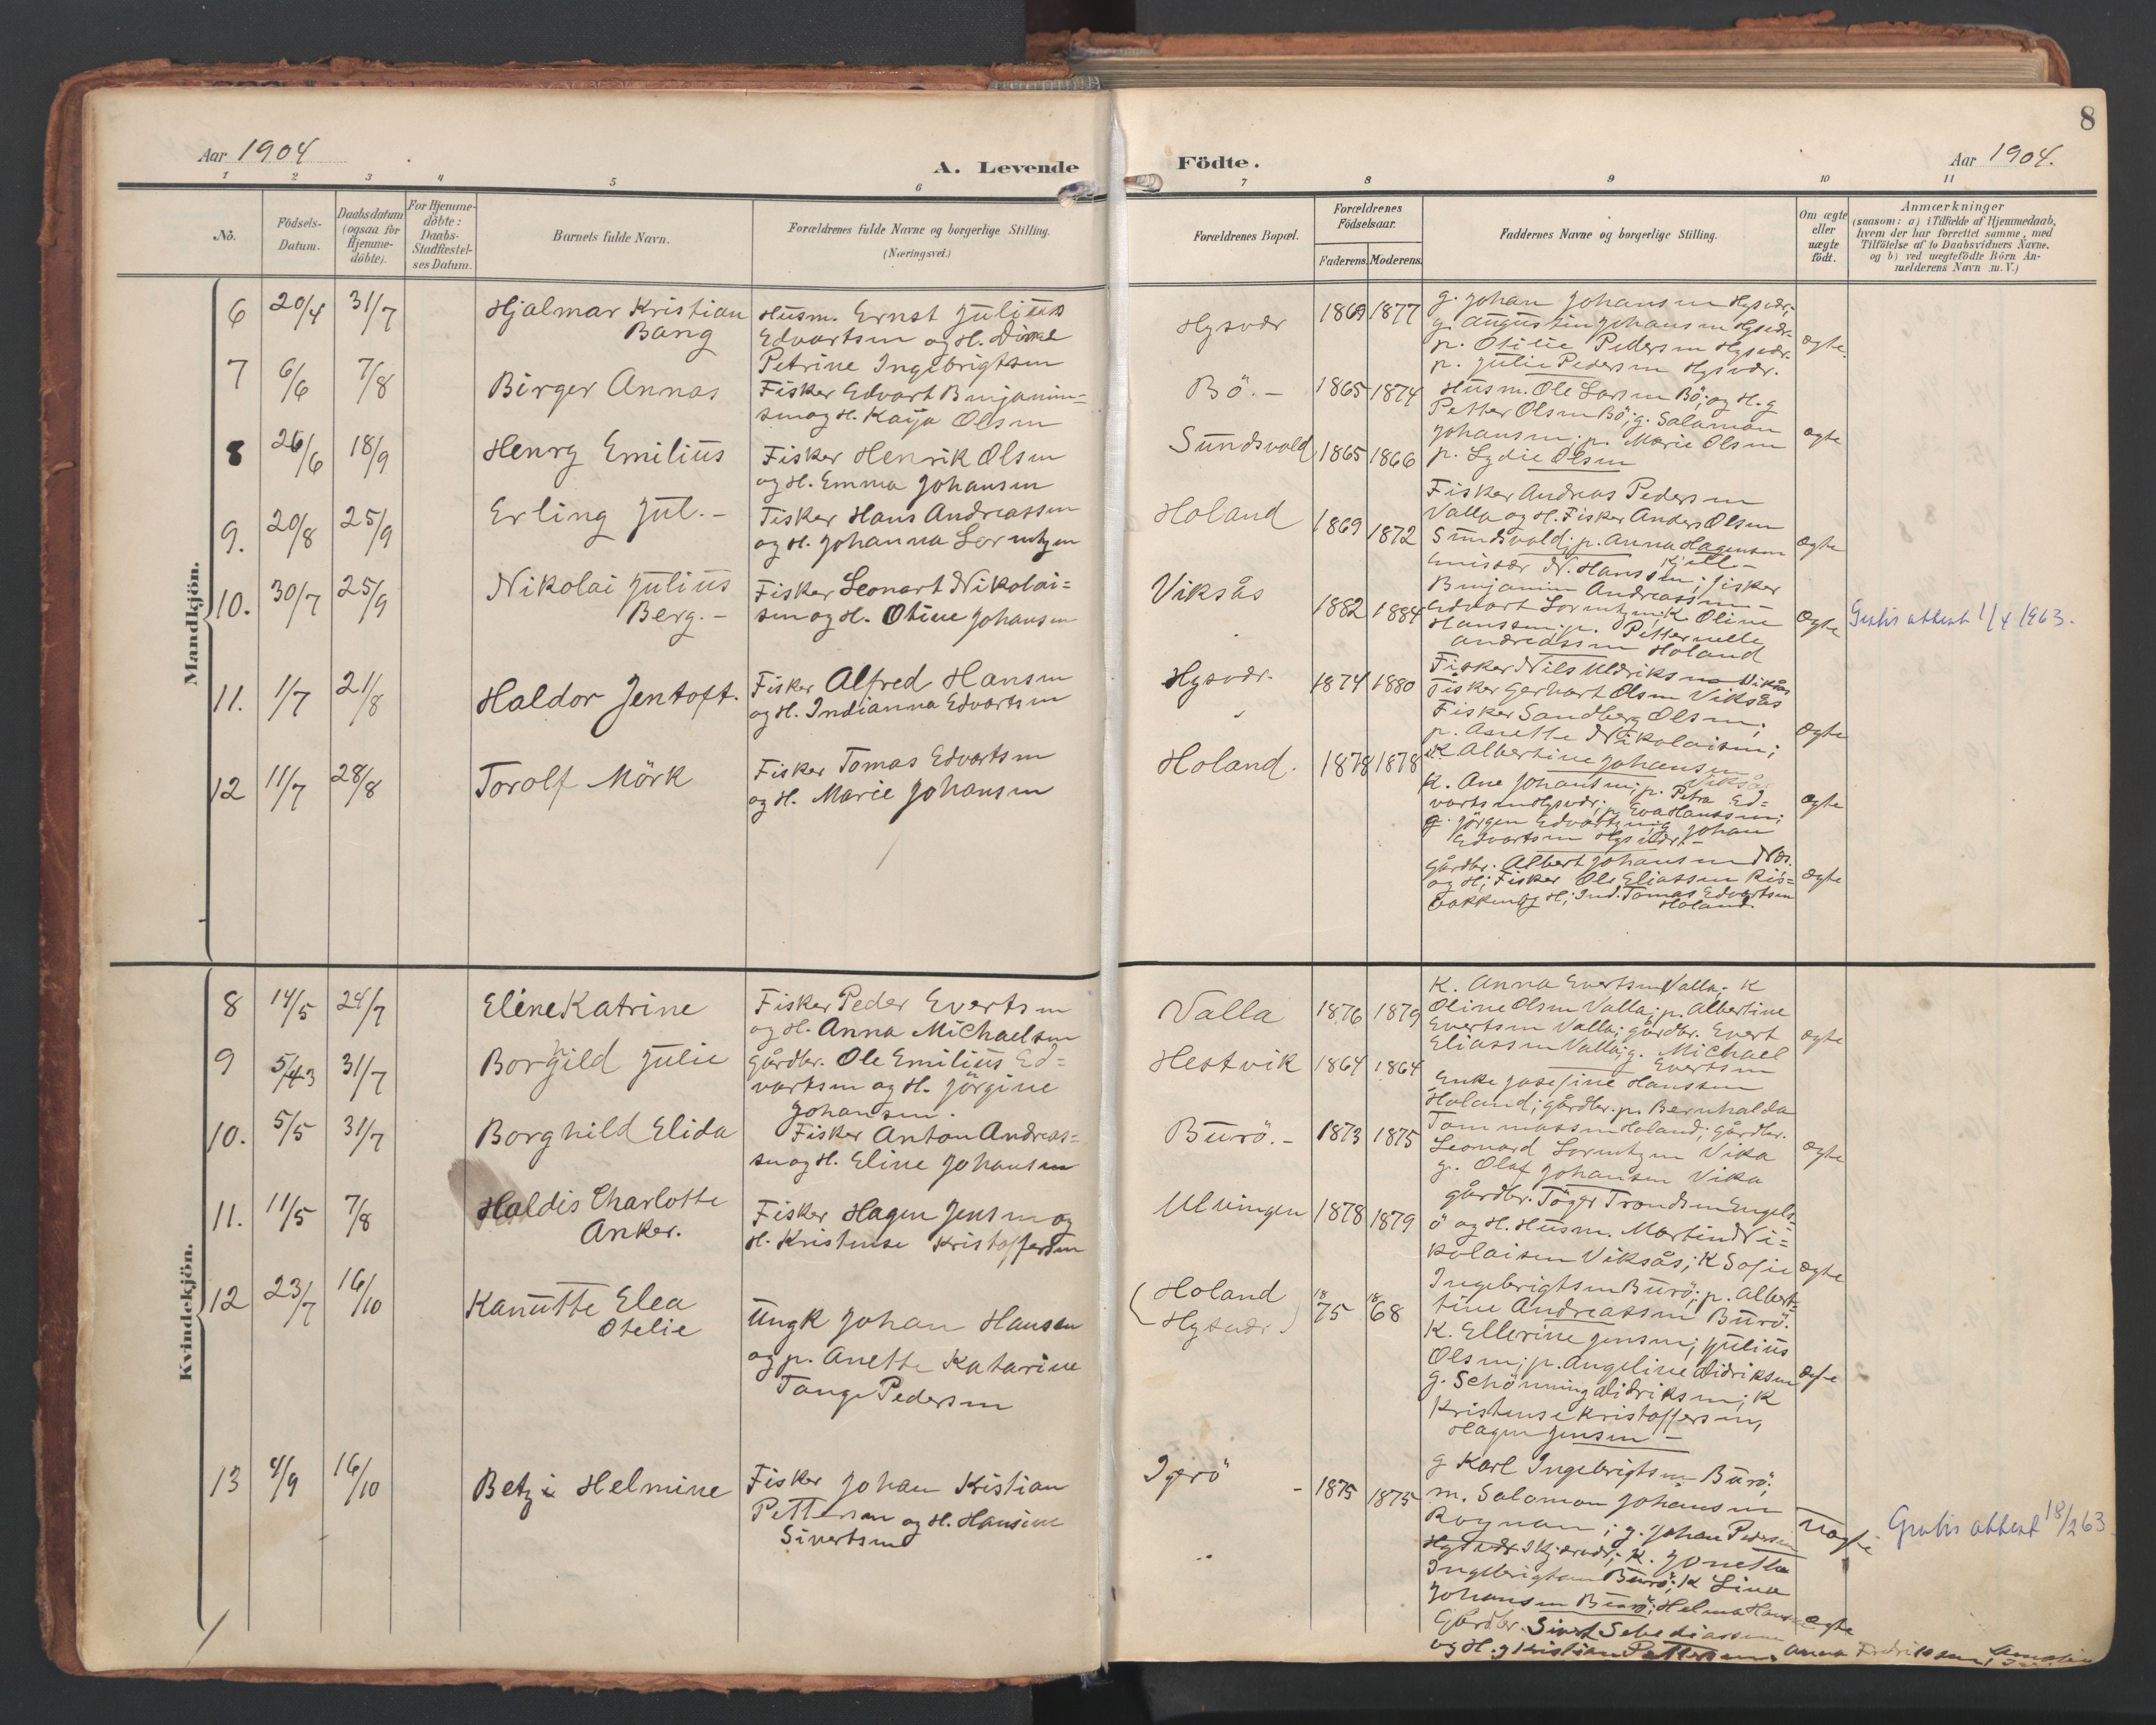 8
Aar 1904
A. Levende
Födte.
Aar 1904.
1 2 3 4 5 6 7 8 9 10 11
No.
Födsels-
Datum.
Daabsdatum
(ogsaa for
Hjemme-
döbte).
For Hjemme-
döbte:
Daabs-
Stadfæstel-
ses Datum.
Barnets fulde Navn.
Forældrenes fulde Navne og borgerlige Stilling.
(Næringsvei.)
Forældrenes Bopæl.
Forældrenes
Födselsaar.
Faderens. Moderens.
Faddernes Navne og borgerlige Stilling.
Om ægte
eller
uægte
födt.
Anmærkninger
(saasom: a) i Tilfælde af Hjemmedaab,
hvem der har forrettet samme, med
Tilföielse af to Daabsvidners Navne,
og b) ved uægtefödte Börn An-
melderens Navn m. V.)
Mandkjön.
6 20/4 31/7
Hjalmar Kristian
Bang
Husm. Ernst Julius
Edvartsen og H.
Petrine Ingebrigtsen
Hysvær
1869 1877
g. Johan Johansen Hysvær;
g. Augustin Johansen Hysvær
p. Otilie Pedersen Hysvær.
p. Julie Pedersen Hysvær.
ægte.
7 6/6 7/8
Birger Annas
Fisker Edvart Benjamin=
sen og H. Kaja Olsen
Bö. -
1865 1874
Husm. Ole Larsen Bö; og H. g
Petter Olsen Bö; g. Salamon
Johansen; p. Marie Olsen
p. Lydie Olsen
ægte
8 26/6 18/9
Henry Emilius
Fisker Henrik Olsen
og H. Emma Johansen
Sundsvold
1865 1866
Fisker Andreas Pedersen
Valla og H. Fisker Anders Olsen
Sundsvold; p. Anna Hagensen
ægte
9. 20/8 25/9
Erling Jul. -
Fisker Hans Andreassen
og H. Johanna Lorentzen
Holand
1869 1872
N. Hanssen; fisker
Benjamin Andreassen -
Edvart Lorentzen; K. Oline
Hanssen; p. Petternelle
Andreassen Holand
ægte
10. 30/7 25/9
Nikolai Julius
Berg. -
Fisker Leonart Nikolai=
sen og H. Otine Johansen
Viksås
1882 1884
Fisker Nils Uldriksen Viksås
Fisker Gerhart Olsen Viksås
Fisker Sandberg Olsen;
p. Anette Nikolaisen;
K Albertine Johansen
Viksås
ægte
Gratis attest 1/4 1963.
11. 1/7 21/8
Haldor Jentoft.
Fisker Alfred Hansen
og H. Indianna Edvartsen
Hysvær.
1874 1880
K. Ane Johansen; p. Petra Ed=
vartsen Hysvær; p. Eva Hanssen;
g. Jörgen Edvartsen; g Johan
Edvartsen Hysvær -
ægte
12 11/7 28/8
Torolf Mörk
Fisker Tomas Edvartsen
og H. Marie Johansen
Holand.
1878 1878
Gårdbr. Albert Johansen Næs.
og H; Fisker Ole Eliassen Ris=
bakken og H; Ind. Tomas Edvartsen
Holand
ægte
Kvindekjön.
8 14/5 24/7
Eline Katrine
Fisker Peder Evertsen
og H. Anna Michaelsen
Valla
1876 1879
K. Anna Evertsen Valla; K
Oline Olsen Valla; p. Albertine
Evertsen Valla; gårdbr. Evert
Eliassen Valla; g. Michael
Evertsen
ægte
9 5/3 31/7
Borghild Julie
Gårdbr. Ole Emilius Ed=
vartsen og H. Jörgine
Johansen.
Hestvik
1864 1864
Enke Josefine Hanssen
Holand; gårdbr. p. Bernhalda
Tommassen Holand; gårdbr.
Leonard Lorentzen Vika
g. Olaf Johansen Vika
ægte
10. 5/5 31/7
Borghild Elida
Fisker Anton Andreas=
sen og H. Eline Johansen
Burö. -
1873 1875
Gårdbr. Töger Trondsen Engels=
ö og H. Husm. Martin Ni=
kolaisen Viksås; K Sofie
Ingebrigtsen Burö; p. Albert=
tine Andreassen Burö.
ægte
11. 11/5 7/8
Haldis Charlotte
Anker.
Fisker Hagen Jensen og
H. Kristense Kristoffersen
Ulvingen
1878 1879
K. Ellerine Jensen; Julius
Olsen; p. Angeline Didriksen
g. Schönning Didriksen; K
Kristense Kristoffersen,
Hagen Jensen -
ægte
12 23/7 16/10
Kanutte Elea
Otelie
Ungk Johan Hansen
og p. Anette Katarine
Tange Pedersen
(Holand
Hysvær)
1875 1868
g Karl Ingebrigtsen Burö;
m. Salomon Johansen
Rognan; g. Johan Pedersen
Hysvær Skjærvær; K. Jonetta
Ingebrigtsen Burö; K Lina
Johansen Burö; Helma Hans=
Uægte
13 4/9 16/10
Betzi Helmine
Fisker Johan Kristian
Pettersen og H. Hansine
Sivertsen
Igerö -
1875 1875
Gårdbr. Sivert Sebediassen
og H. g Kristian Pettersen. Anna Fredriksen,
ægte
Gratis attest 18/2 63